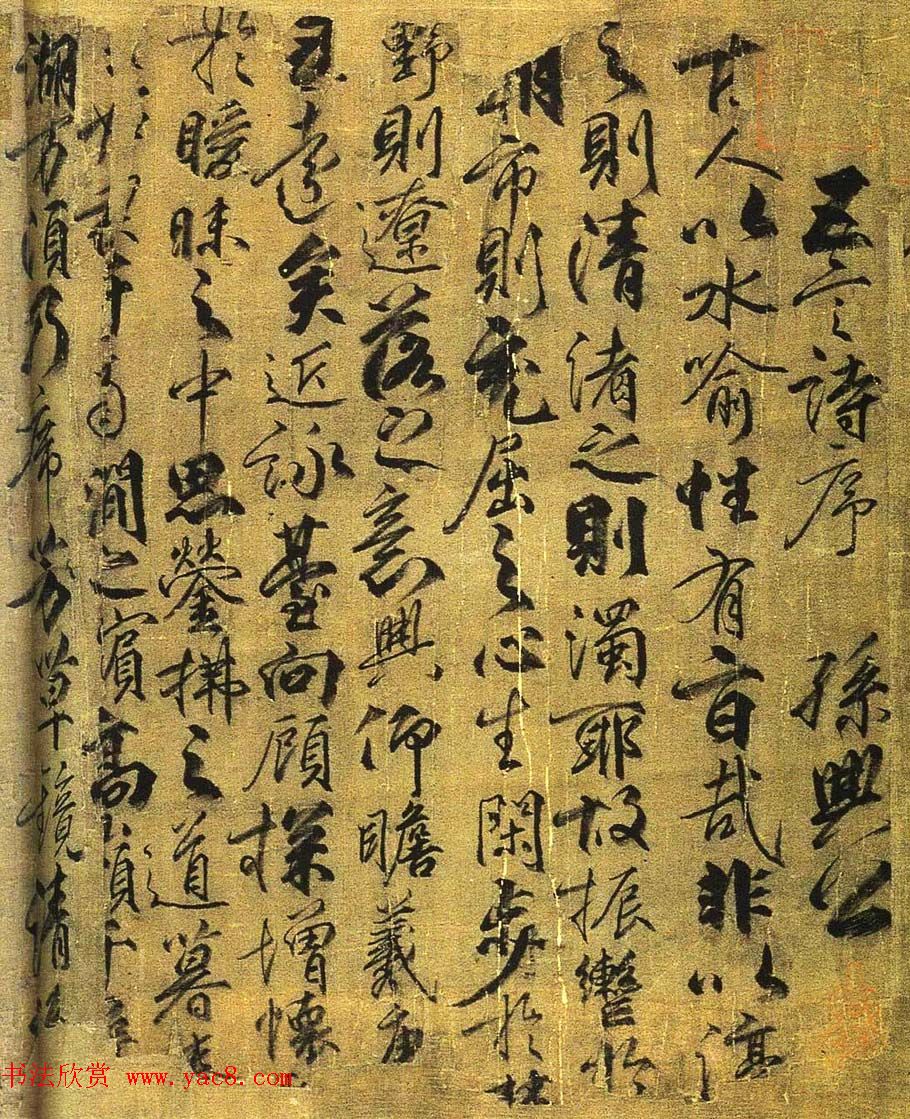 五言詩序 孫興公
古人以水喻性有旨哉非以渟
之則清渚之則濁耶故振轡於
朝市則充屈之心生閑步於林
野則遼落之意興仰瞻羲唐
已遠矣近詠臺向顧探增懷
於曖昧之中思鎣拂之道暮春
禊于南澗之濱高嶺千尋
湖萬頃乃席芳草鏡清流
书法欣赏 www.yac8.com